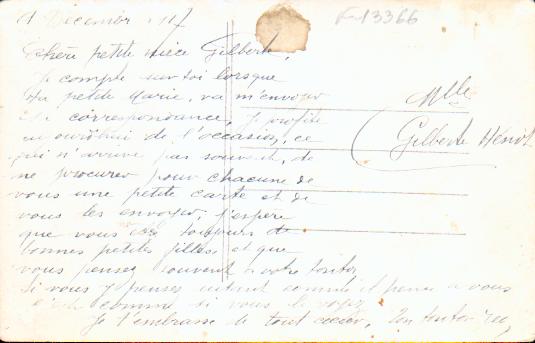 1 Décembre 1917
F-13366
Chère petite nièce Gilberte,
Je compte sur toi lorsque
ta petite Marie, va m'envoyer
correspondance, Je profite
aujourd'hui de l'occasion, ce
qui n'arrive pas souvent, de
me procurer pour chacune de
vous une petite carte et de
vous les envoyer, j'espère
que vous êtes toujours de
bonnes petites filles et que
vous pensez souvent à votre tonton
Si vous y pensez autant comme il pense à vous
c'est comme si vous le voyez
Je t'embrasse de tout cœur, Ton tonton
Mlle
Gilberte Hénot